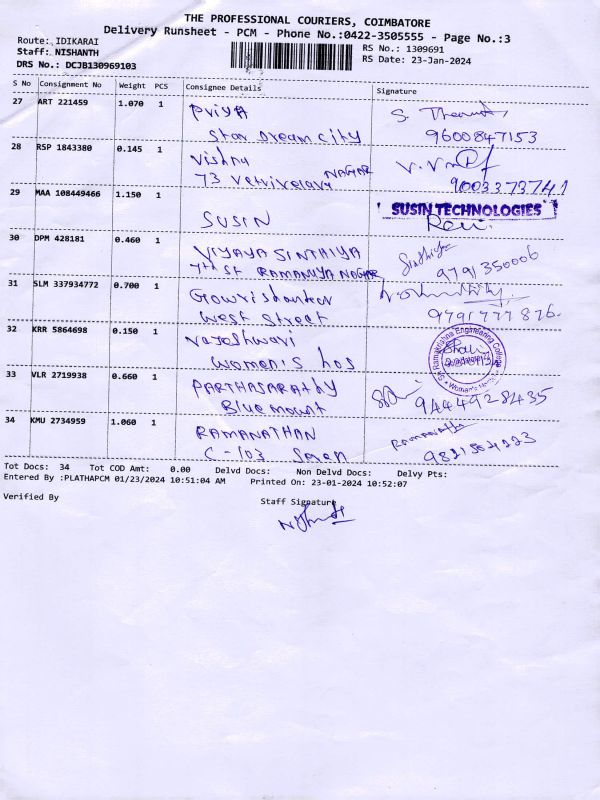 THE PROFESSIONAL COURIERS, COIMBATORE
Delivery Runsheet - PCM - Phone No.:0422-3505555 - Page No.:3
Route: IDIKARAI
RS No.: 1309691
Staff: NISHANTH
RS Date: 23-Jan-2024
DRS No.: DCJB130969103
S No Consignment No Weight PCS Consignee Details Signature
27 ART 221459 1.070 1 Priya
Star Dream city 9600847153
28 RSP 1843380 0.145 1 Vishnu
73 Vetrivelava NAGAR 9003373741
29 MAA 108449466 1.150 1 SUSIN
SUSIN TECHNOLOGIES
30 DPM 428181 0.460 1 VIYAYA SINTHIYA
7th St RAMANUYA NAGAR 9791350006
31 SLM 337934772 0.700 1 Gowrishankar
West Street
32 KRR 5864698 0.150 1 Rajeshwari
Women's hos
Sri Ramakrishna Engineering College
Women's Hostel
33 VLR 2719938 0.660 1 PARTHASARATHY
Blue mount 9444928435
34 KMU 2734959 1.060 1 RAMANATHAN Ramanathan
C-103
Tot Docs: 34 Tot COD Amt: 0.00 Delvd Docs: Non Delvd Docs: Delvy Pts:
Entered By :PLATHAPCM 01/23/2024 10:51:04 AM Printed On: 23-01-2024 10:52:07
Verified By Staff Signature